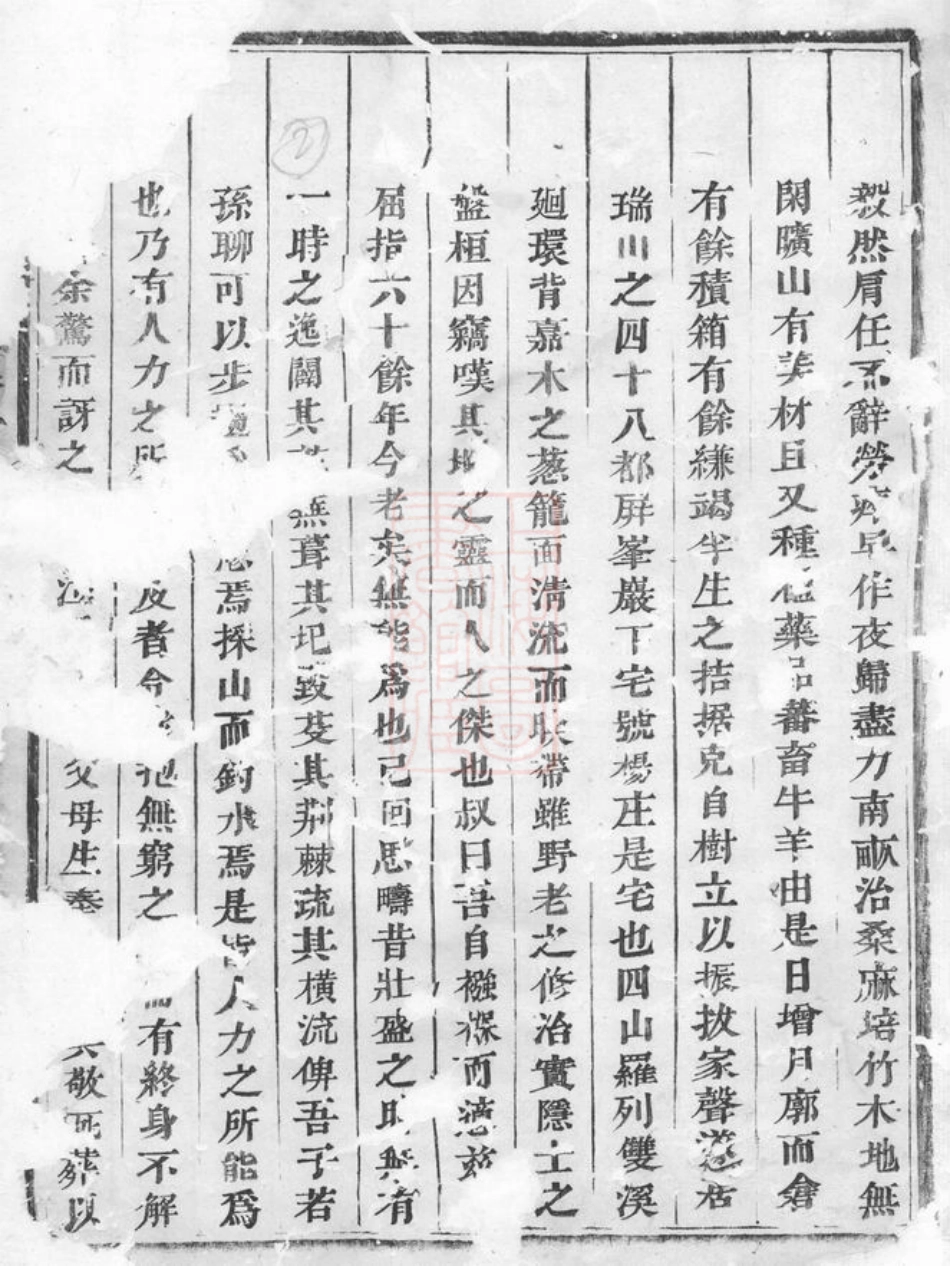 毅然肩任不辭勞瘁早作夜歸盡力南畝治桑麻培竹木地無
閑曠山有美材且又種植藥品蕃畜牛羊由是日增月廓而倉
有餘積箱有餘縑竭半生之拮据克自樹立以振拔家聲遂居
瑞川之四十八都屏峯巖下宅號楊庄是宅也四山羅列雙溪
廻環背嘉木之蔥籠面清流而映帶雖野老之修治實隱士之
盤桓因竊嘆其地之靈而人之傑也叔曰吾自襁褓而憩兹
屈指六十餘年今老矣無能爲也已回思疇昔壯盛之時無有
一時之逸闢其蕪葺其圮裁芟其荆棘疏其橫流俾吾子若
孫聊可以步焉採山而釣水焉是皆人力之所能爲
也乃有人力之所反者今他無窮之有終身不解
余驚而訝之父母生奉敬死葬以
②